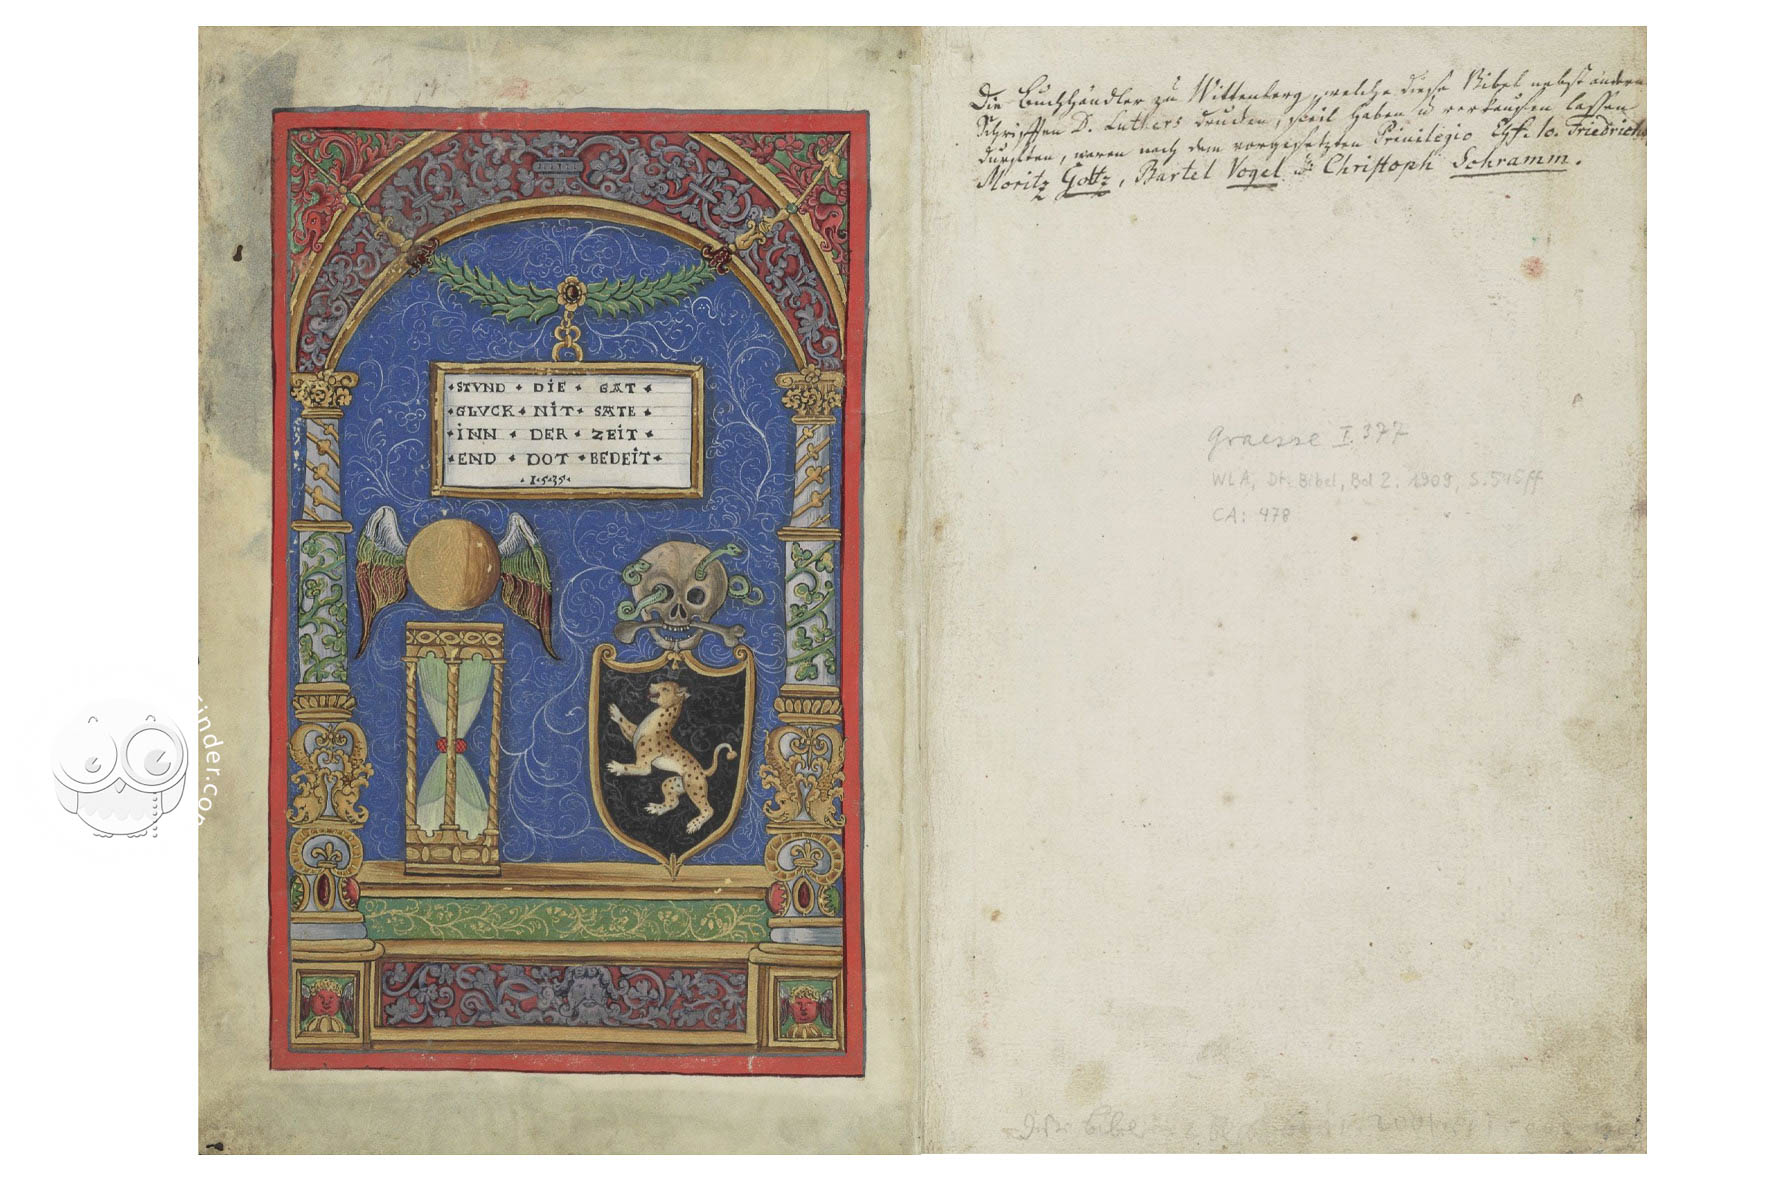 · STVND · DIE · GAT ·
· GLVCK · NIT · SATE ·
· INN · DER · ZEIT ·
· END · DOT · BEDEIT ·
· 1·5·35·
Die Buchhändler zu Wittenberg, welche diese Bibel nebst andern
Schrifften D. Luthers drucken, feil haben u verkauffen lassen
durfften, waren nach dem vorgesetzten Privilegio Chf. Jo. Friedrichs
Moritz Goltz, Bartel Vogel u Christoph Schramm.
Graesse I.377
WLA, Dt. Bibel, Bd 2. 1909, S. 545ff
CA: 478
Diese Bibel
inder.co